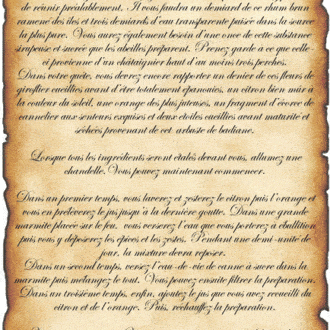 de réunir préalablement. Il vous faudra un demiard de ce rhum brun
ramené des îles et trois demiards d'eau transparente puisée dans la source
la plus pure. Vous aurez également besoin d'une once de cette substance
sirupeuse et sucrée que les abeilles préparent. Prenez garde à ce que celle-
ci provienne d'un châtaignier haut d'au moins trois perches.
Dans votre quête, vous devrez encore rapporter un denier de ces fleurs de
giroflier cueillies avant d'être totalement épanouies, un citron bien mûr à
la couleur du soleil, une orange des plus juteuses, un fragment d'écorce de
cannelier aux senteurs exquises et deux étoiles cueillies avant maturité et
séchées provenant de cet arbuste de badiane.
Lorsque tous les ingrédients seront étalés devant vous, allumez une
chandelle. Vous pouvez maintenant commencer.
Dans un premier temps, vous laverez et zesterez le citron puis l'orange et
vous en prélèverez le jus jusqu'à la dernière goutte. Dans une grande
marmite placée sur le feu, vous verserez l'eau que vous porterez à ébullition
puis vous y déposerez les épices et les zestes. Pendant une demi-unité de
jour, la mixture devra reposer.
Dans un second temps, versez l'eau-de-vie de canne à sucre dans la
marmite puis mélangez le tout. Vous pouvez ensuite filtrer la préparation.
Dans un troisième temps, enfin, ajoutez le jus que vous avez recueilli du
citron et de l'orange. Puis, réchauffez la préparation.